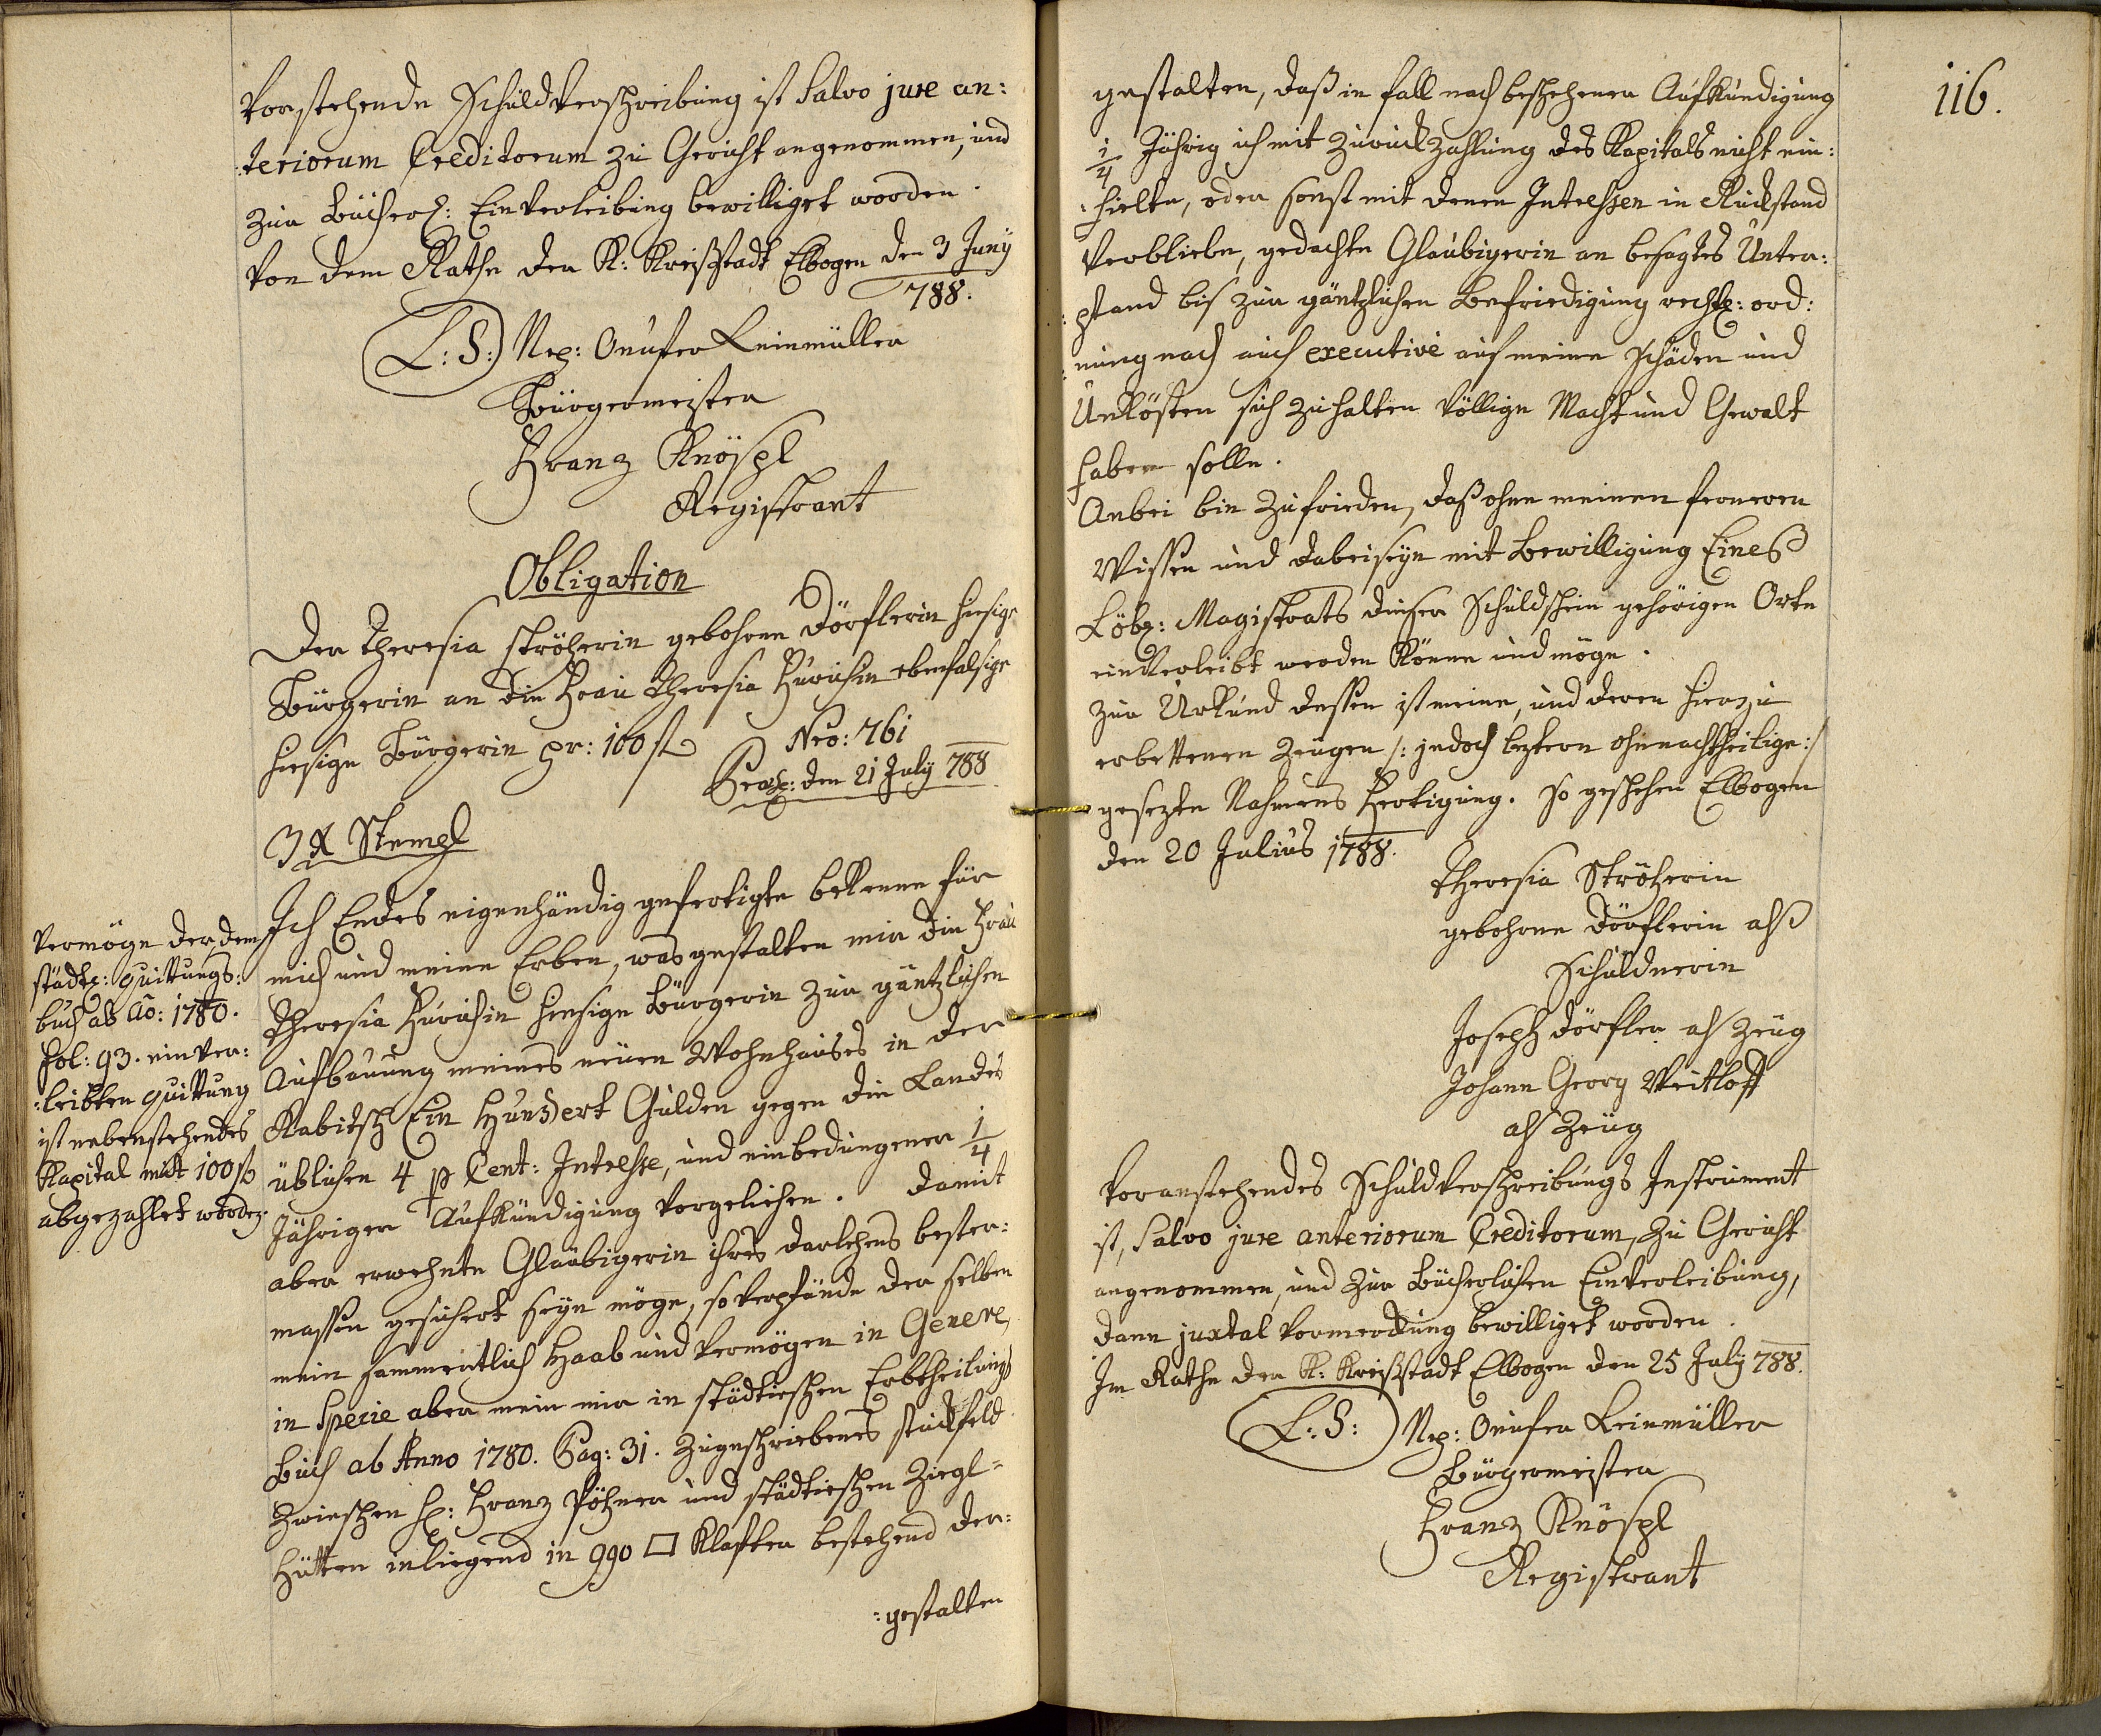 Vorstehende Schuldverschreibung ist Salvo jure an:
:teriorum Creditorum zu Gericht angenommen, und
zur Bücherl: Einverleibung bewilliget worden.
Von dem Rathe der K: Kreißstadt Elbogen den 3 Juny
788.
L: S: Nep: Onufer Leinmüller
Bürgermeister
Franz Knöspl
Registrant
Obligation
Der Theresia Ströherin gebohrne Dörflerin hiesige
Bürgerin an die Frau Theresia Hürichin ebenfalsige
hiesige Bürgerin pr: 100 fl
Nro: 761
Praes: den 21 July 788
3 x Stempl
Ich Endes eigenhändig gefertigte bekenne für
mich und meine Erben, was gestalten mir die Frau
Theresia Hürichin hiesige Bürgerin zur gäntzlichen
Aufbauung meines neuen Wohnhauses in der
Rabitsch Ein Hundert Gulden gegen die Landes
üblichen 4 p Cent: Interesse, und einbedungener 1/4
Jähriger Aufkündigung vorgeliehen. Damit
aber erwehnte Glaubigerin ihres Darlehens bester:
massen gesichert seyn möge, so verpfände der selben
mein sammentlich Haab und Vermögen in Genere,
in Specie aber mein mir in städtischen Erbtheilungs
Buch ab Anno 1780. Pag: 31. zugeschriebenes stückfeld
zwischen H: Franz Pöhner und städtischen Ziegl=
Hütten inliegend in 990 □ Klafter bestehend der:
:gestalten
Vermöge der, dem
städt: quittungs:
buch ab Ao: 1780.
Fol: 93. einver:
:leibten quittung
ist nebenstehendes
Kapital mit 100 fl
abgezahlet worden.
116.
gestalten, daß in fall nach beschehener Aufkündigung
1/4 Jährig ich mit zurückzahlung des Kapitals nicht ein:
:hielte, oder sonst mit denen Interessen in Rückstand
verbliebe, gedachte Glaubigerin an besagtes Unter:
:pfand bis zur gäntzlichen Befriedigung rechtl: ord:
:nung nach auch executive auf meine Schäden und
Unkösten sich zuhalten völlige Macht und Gewalt
haben solle.
Anbei bin zufrieden, daß ohne meinen ferneren
Wissen und dabeiseyn mit Bewilligung Eines
Löbl: Magistrats dieser Schuldschein gehörigen Orte
einverleibt werden könne und möge.
Zur Urkund dessen ist meine, und deren hierzu
erbettenen Zeugen /: jedoch leztern ohnnachtheilige :/
gesezte Nahmens Fertigung. So geschehen Elbogen
den 20 Julius 1788.
Theresia Ströherin
gebohrne Dörflerin alß
Schuldnerin
Joseph Dörfler als Zeug
Johann Georg Veitloff
als Zeug
Voranstehendes Schuldverschreibungs Instrument
ist, Salvo jure anteriorum Creditorum, zu Gericht
angenommen, und zur Bücherlichen Einverleibung,
dann juxtal Vormerckung bewilliget worden.
Im Rathe der K: Kreißstadt Elbogen den 25 July 788.
L: S: Nep: Onufer Leinmüller
Bürgermeister
Franz Knöspl
Registrant